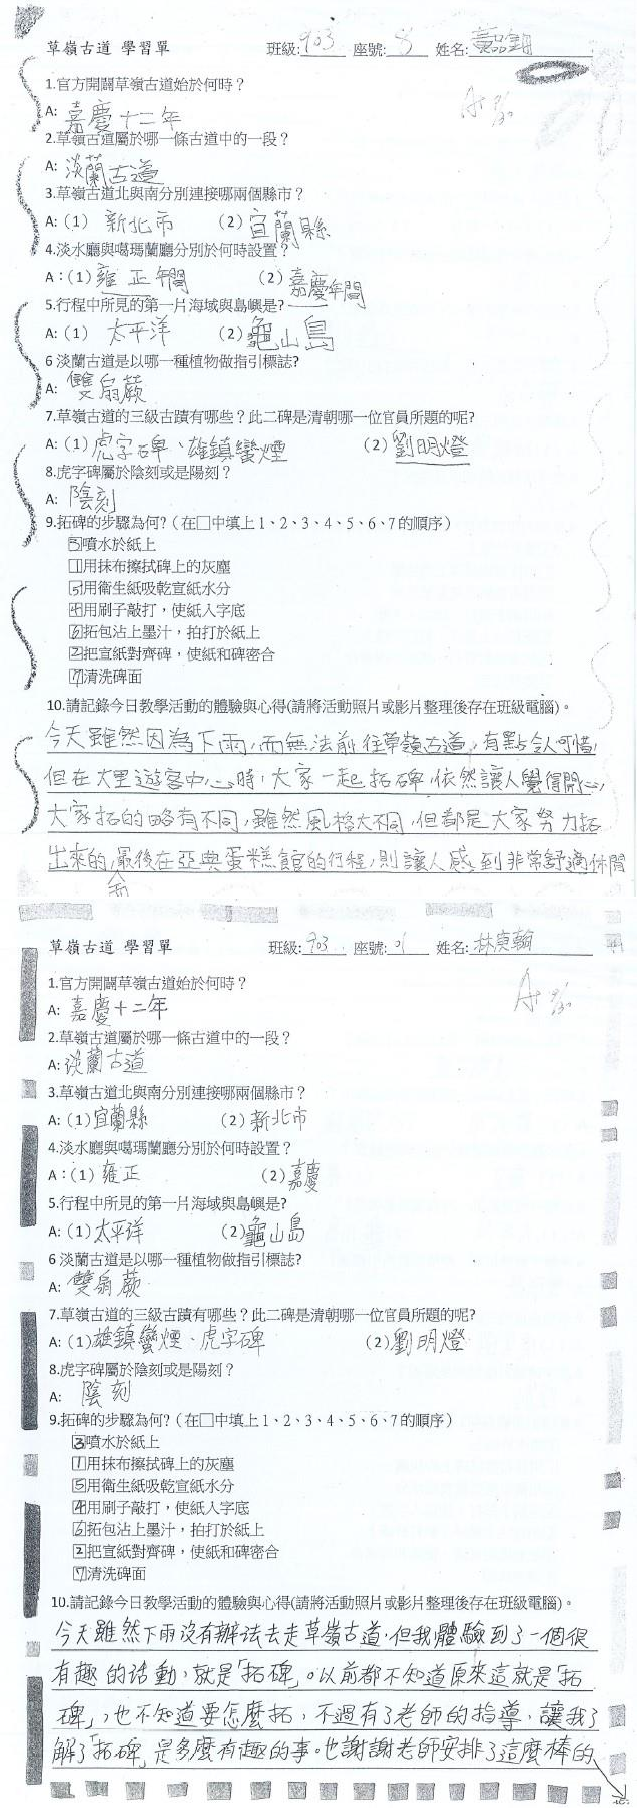 草嶺古道 學習單 班級: 903 座號: 8 姓名:
A+ 9/30
1.官方開闢草嶺古道始於何時？
A: 嘉慶十二年
2.草嶺古道屬於哪一條古道中的一段？
A: 淡蘭古道
3.草嶺古道北與南分別連接哪兩個縣市？
A: (1) 新北市 (2) 宜蘭縣
4.淡水廳與噶瑪蘭廳分別於何時設置？
A：(1) 雍正年間 (2) 嘉慶年間
5.行程中所見的第一片海域與島嶼是?
A: (1) 太平洋 (2) 龜山島
6 淡蘭古道是以哪一種植物做指引標誌?
A: 雙扇蕨
7.草嶺古道的三級古蹟有哪些？此二碑是清朝哪一位官員所題的呢?
A: (1) 虎字碑、雄鎮蠻煙 (2) 劉明燈
8.虎字碑屬於陰刻或是陽刻？
A: 陰刻
9.拓碑的步驟為何?（在□中填上 1、2、3、4、5、6、7 的順序）
3噴水於紙上
1用抹布擦拭碑上的灰塵
5用衛生紙吸乾宣紙水分
4用刷子敲打，使紙入字底
6拓包沾上墨汁，拍打於紙上
2把宣紙對齊碑，使紙和碑密合
7清洗碑面
10.請記錄今日教學活動的體驗與心得(請將活動照片或影片整理後存在班級電腦)。
今天雖然因為下雨，而無法前往草嶺古道，有點令人可惜，
但在大里遊客中心時，大家一起拓碑，依然讓人覺得開心，
大家拓的略有不同，雖然風格大不同，但都是大家努力拓
出來的，最後在亞典蛋糕館的行程，則讓人感到非常舒適休閒
草嶺古道 學習單 班級: 903 座號: 01 姓名: 林庾翰
A+ 9/30
1.官方開闢草嶺古道始於何時？
A: 嘉慶十二年
2.草嶺古道屬於哪一條古道中的一段？
A: 淡蘭古道
3.草嶺古道北與南分別連接哪兩個縣市？
A: (1) 宜蘭縣 (2) 新北市
4.淡水廳與噶瑪蘭廳分別於何時設置？
A：(1) 雍正 (2) 嘉慶
5.行程中所見的第一片海域與島嶼是?
A: (1) 太平洋 (2) 龜山島
6 淡蘭古道是以哪一種植物做指引標誌?
A: 雙扇蕨
7.草嶺古道的三級古蹟有哪些？此二碑是清朝哪一位官員所題的呢?
A: (1) 雄鎮蠻煙、虎字碑 (2) 劉明燈
8.虎字碑屬於陰刻或是陽刻？
A: 陰刻
9.拓碑的步驟為何?（在□中填上 1、2、3、4、5、6、7 的順序）
3噴水於紙上
1用抹布擦拭碑上的灰塵
5用衛生紙吸乾宣紙水分
4用刷子敲打，使紙入字底
6拓包沾上墨汁，拍打於紙上
2把宣紙對齊碑，使紙和碑密合
7清洗碑面
10.請記錄今日教學活動的體驗與心得(請將活動照片或影片整理後存在班級電腦)。
今天雖然下雨沒有辦法去走草嶺古道，但我體驗到了一個很
有趣的活動，就是「拓碑」。以前都不知道原來這就是「拓
碑」，也不知道要怎麼拓，不過有了老師的指導，讓我了
解了「拓碑」是多麼有趣的事。也謝謝老師安排了這麼棒的